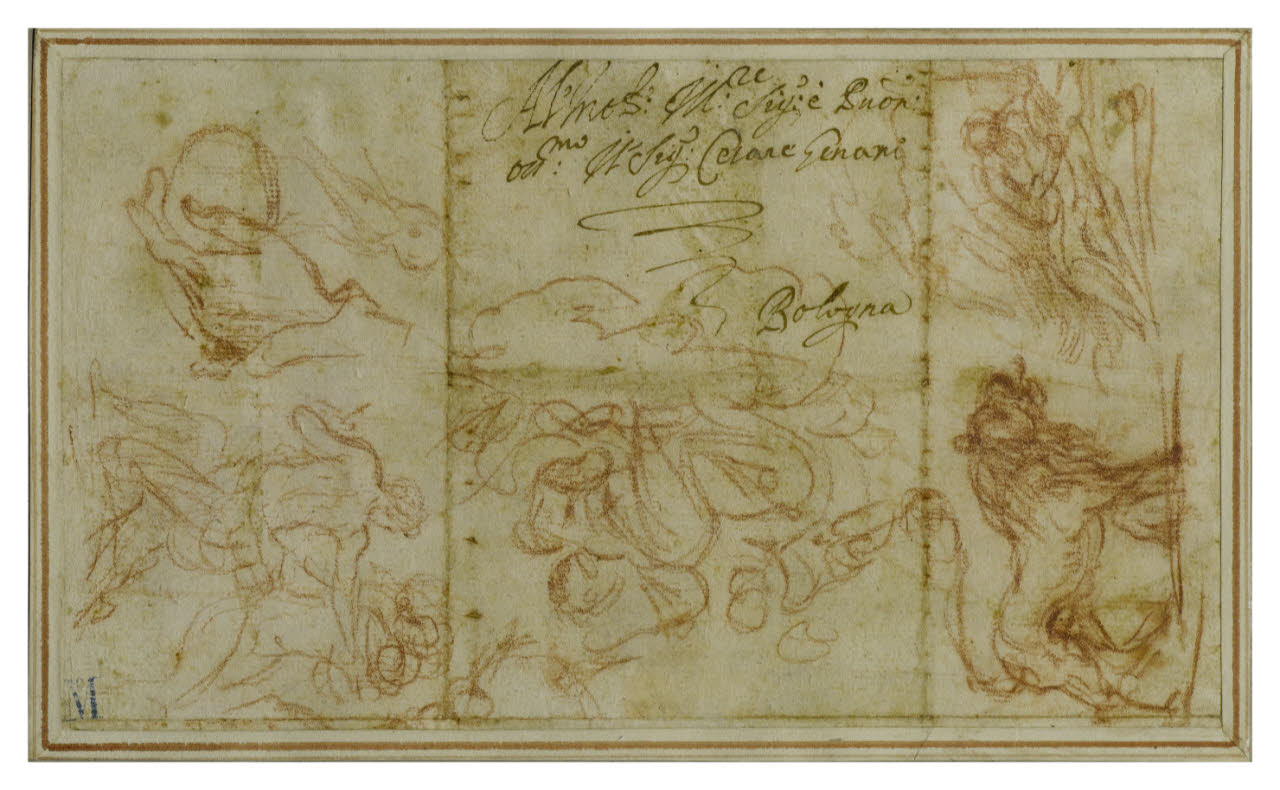 Al Molt: Ill.re Sig:r e Pdron:
oss.mo Il Sig:r Cesare Genari
Bologna